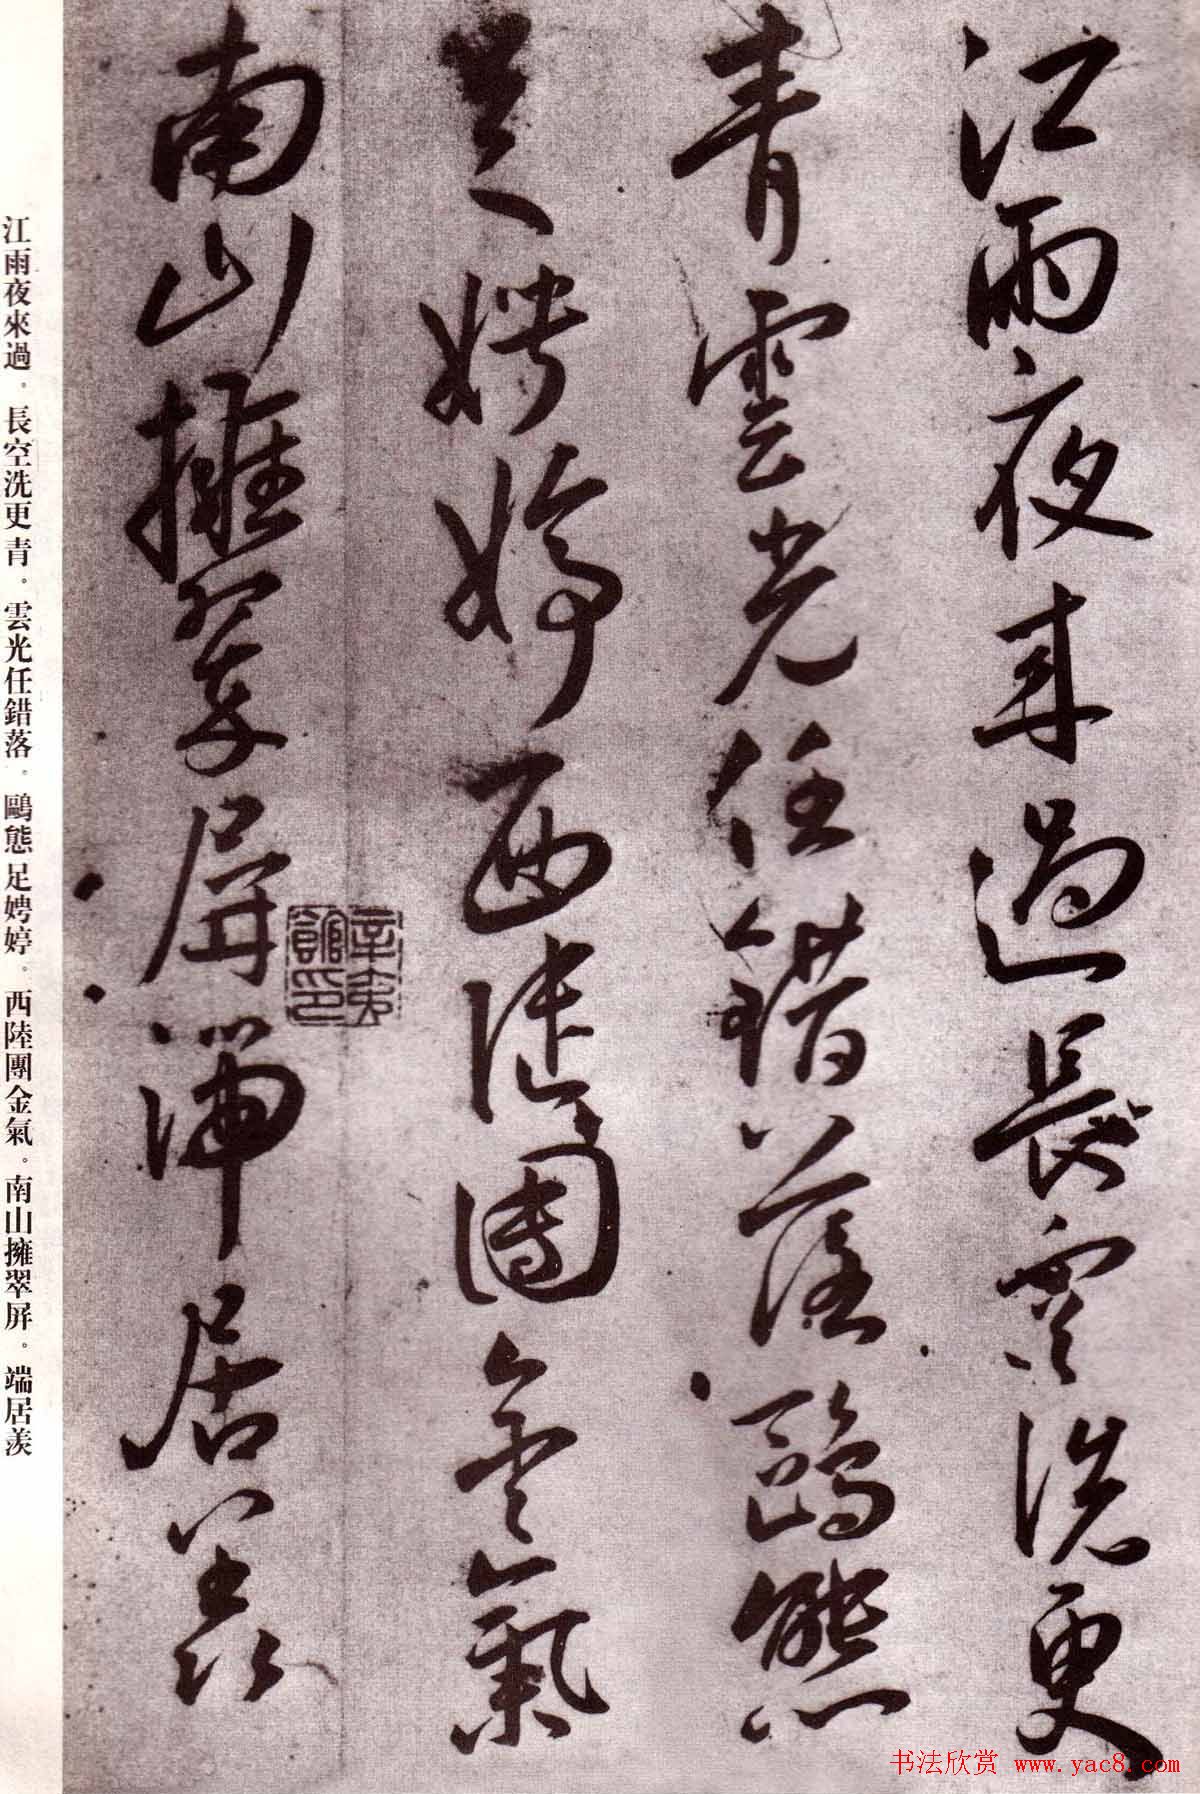 江雨夜來過長空洗更
青雲光任錯落鷗態
足娉婷西陸團金氣
南山擁翠屏端居羨
江雨夜來過。長空洗更青。雲光任錯落。鷗態足娉婷。西陸團金氣。南山擁翠屏。端居羨
书法欣赏 www.yac8.com